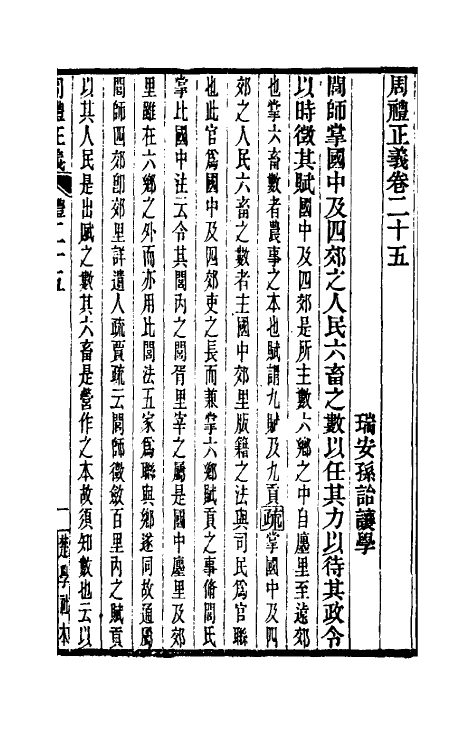 周禮正義卷二十五
瑞安孫詒讓學
閭師掌國中及四郊之人民六畜之數以任其力以待其政令
以時徵其賦國中及四郊是所主數六鄉之中自廛里至遠郊
也掌六畜數者農事之本也賦謂九賦及九貢疏掌國中及四
郊之人民六畜之數者主國中郊里版籍之法與司民為官聯
也此官為國中及四郊吏之長而兼掌六鄉賦貢之事脩閭氏
掌比國中注云令其閭內之閭胥里宰之屬是國中廛里及郊
里雖在六鄉之外而亦用比閭法五家為聯與鄉遂同故通屬
閭師四郊卽郊里詳遺人疏賈疏云閭師徵斂百里內之賦貢
以其人民是出賦之數其六畜是營作之本故須知數也云以
周禮正義 禮二十五 一 楚學社本